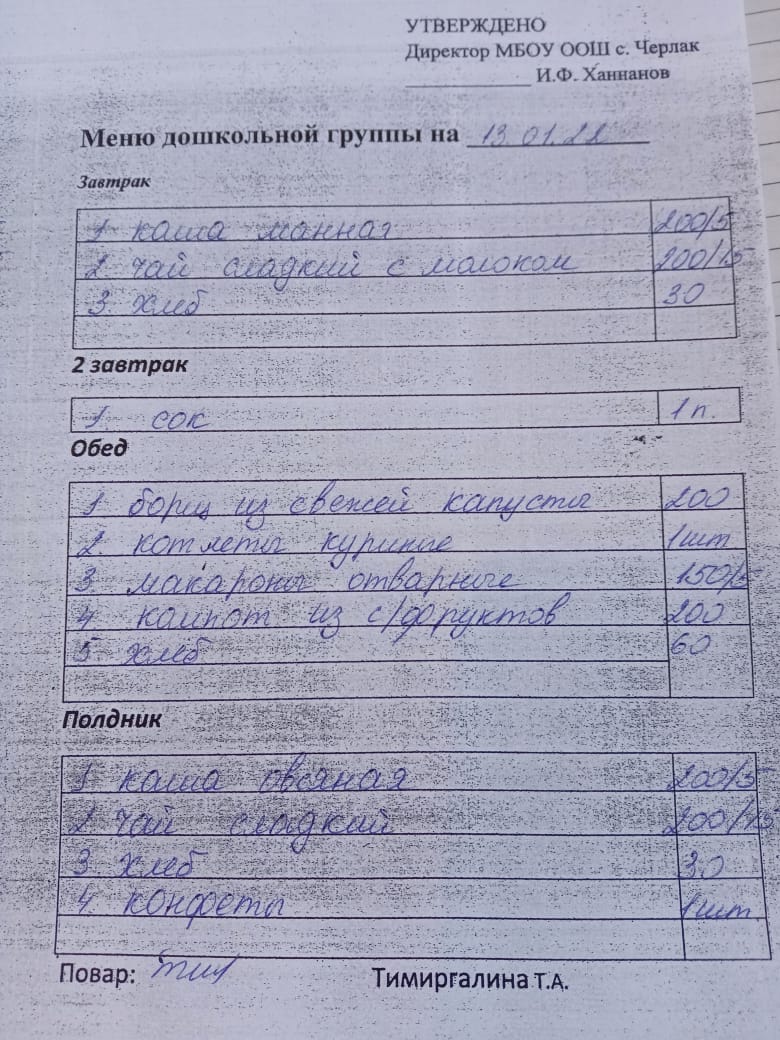 УТВЕРЖДЕНО
Директор МБОУ ООШ с. Черлак
______________ И.Ф. Ханнанов
Меню дошкольной группы на 13.01.22
Завтрак
1 каша манная 200/5
2 чай сладкий с молоком 200/15
3 хлеб 30
2 завтрак
1. сок 1 п.
Обед
1 борщ из свежей капусты 200
2. котлеты куриные 1 шт
3 макароны отварные 150/5
4 компот из с/фруктов 200
5. хлеб 60
Полдник
1 каша овсяная 200/5
2 чай сладкий 200/15
3 хлеб 30
4. конфеты 1 шт.
Повар: Тимиргалина Т.А.